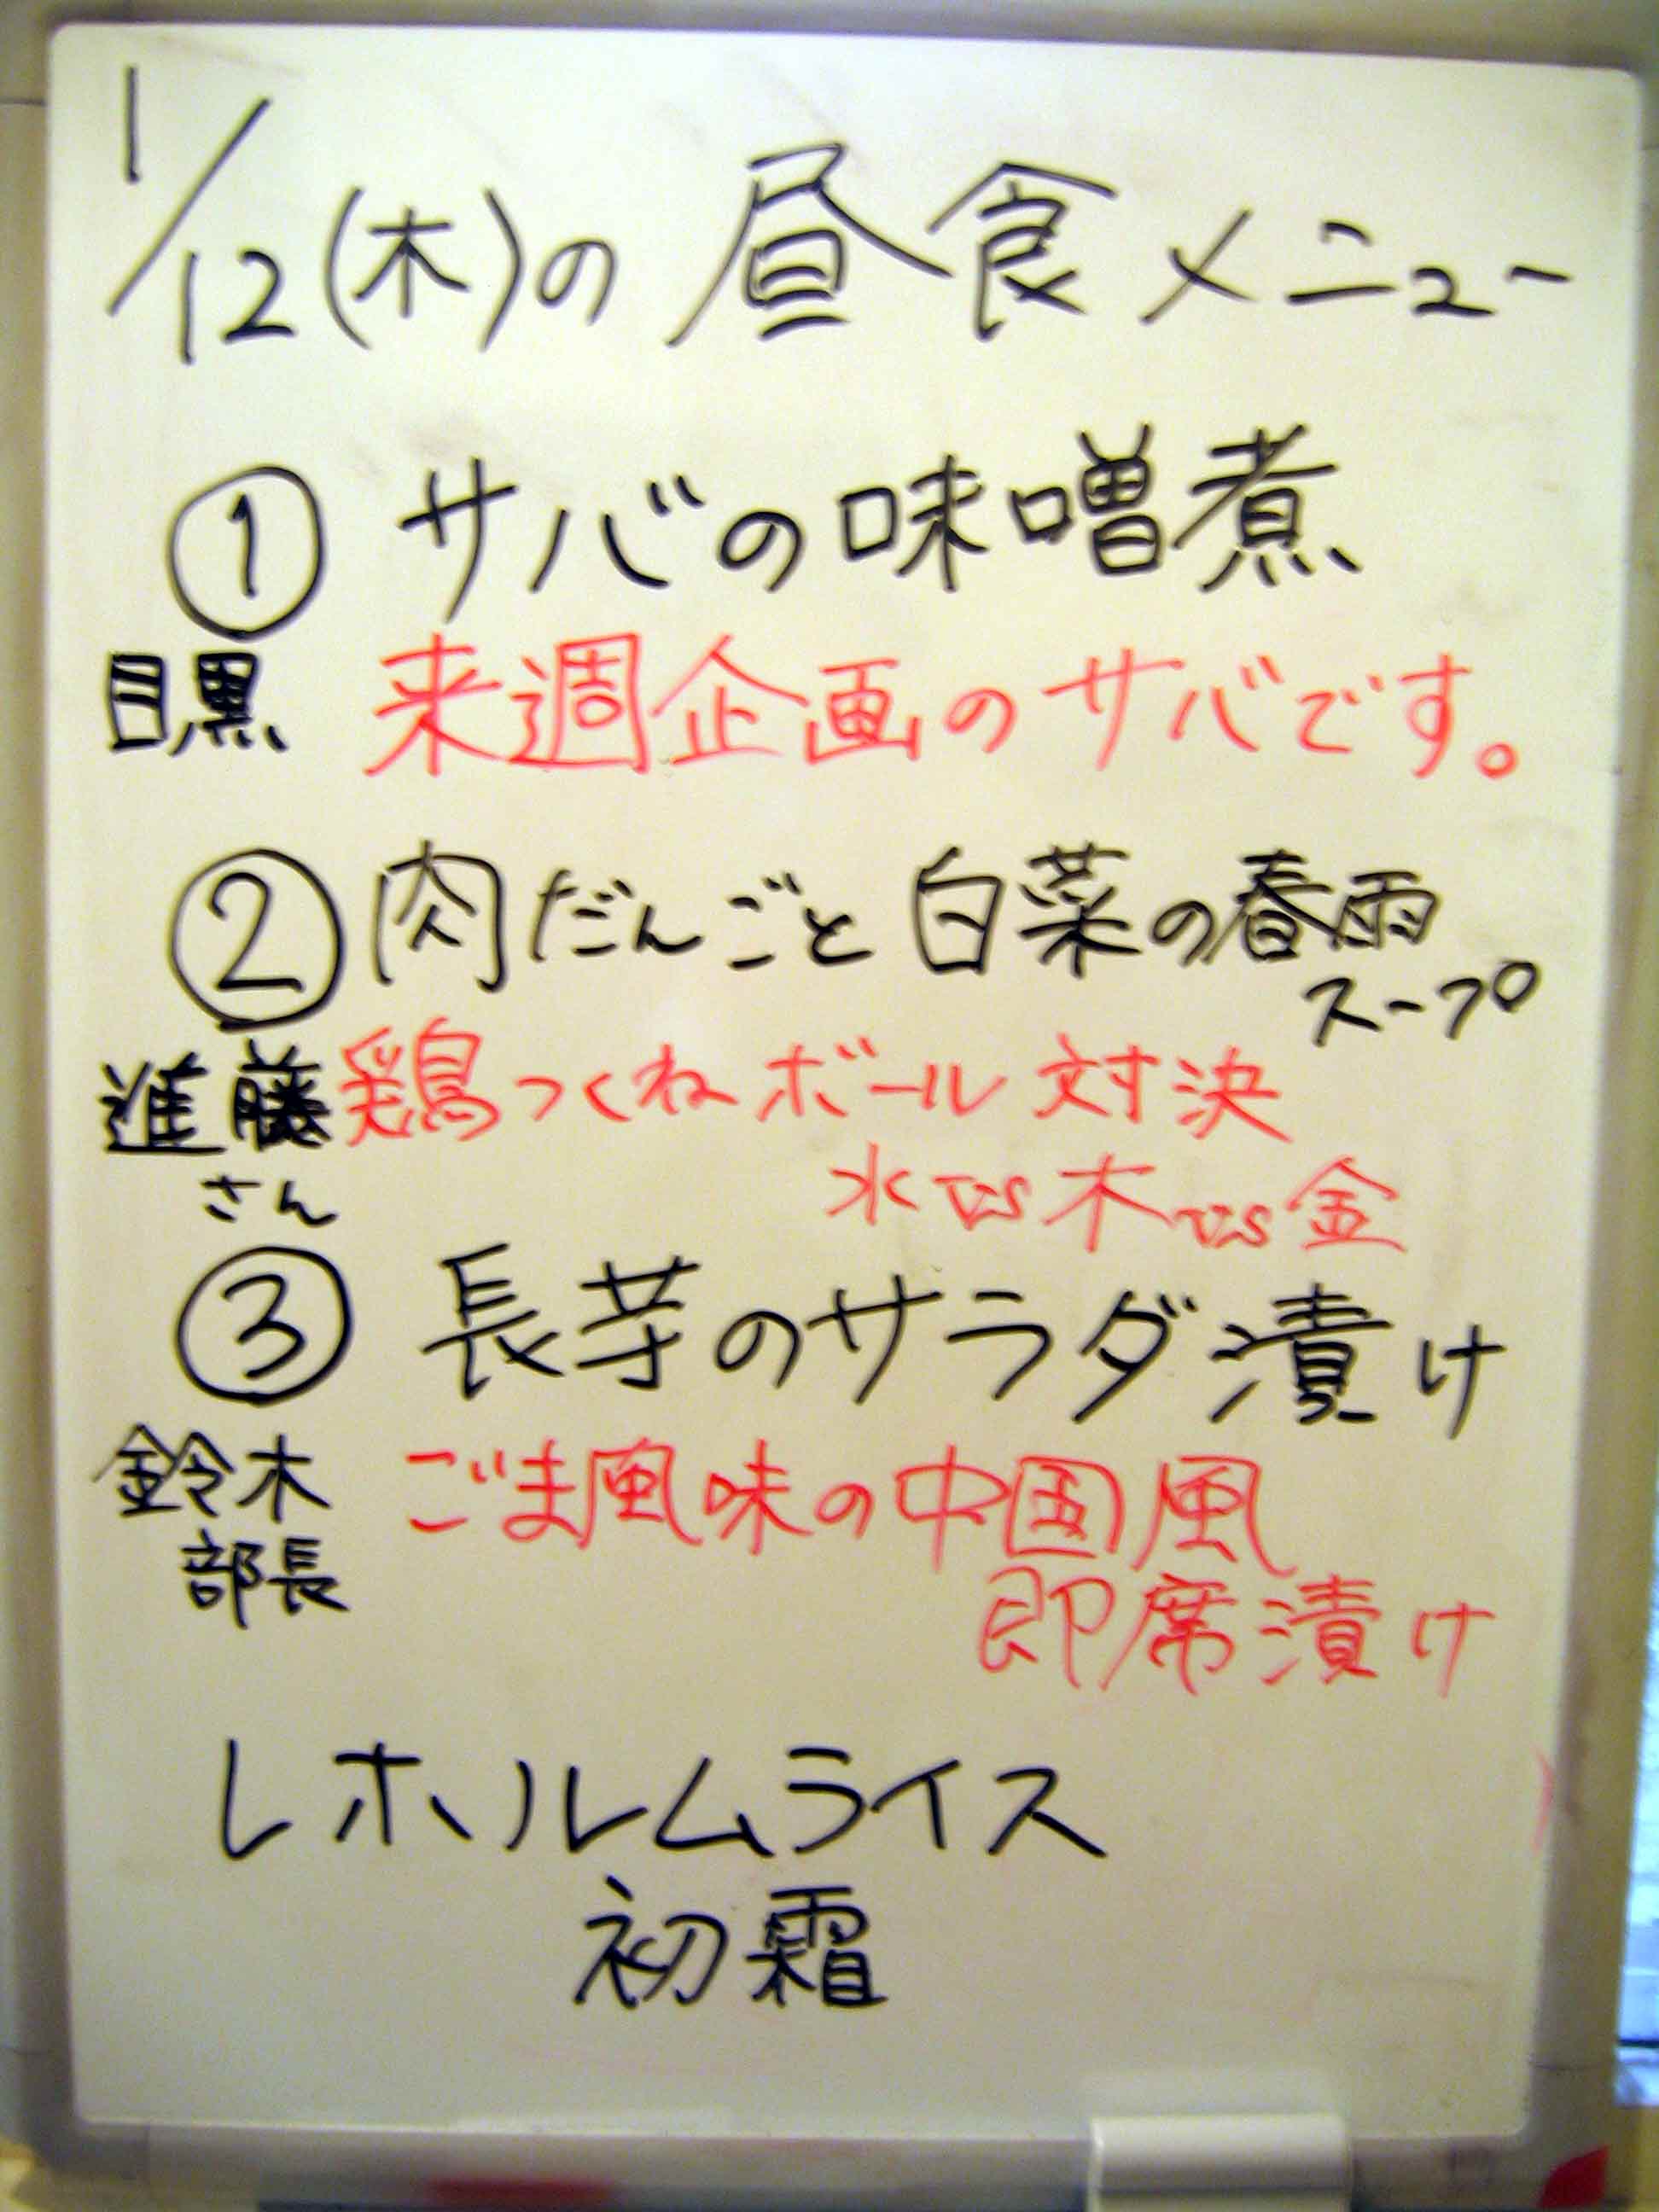 1/12(木)の昼食メニュー
① サバの味噌煮
目黒 来週企画のサバです。
② 肉だんごと白菜の春雨
スープ
進藤 鶏つくねボール対決
さん 水vs木vs金
③ 長芋のサラダ漬け
鈴木 ごま風味の中国風
部長 即席漬け
レホルムライス
初霜